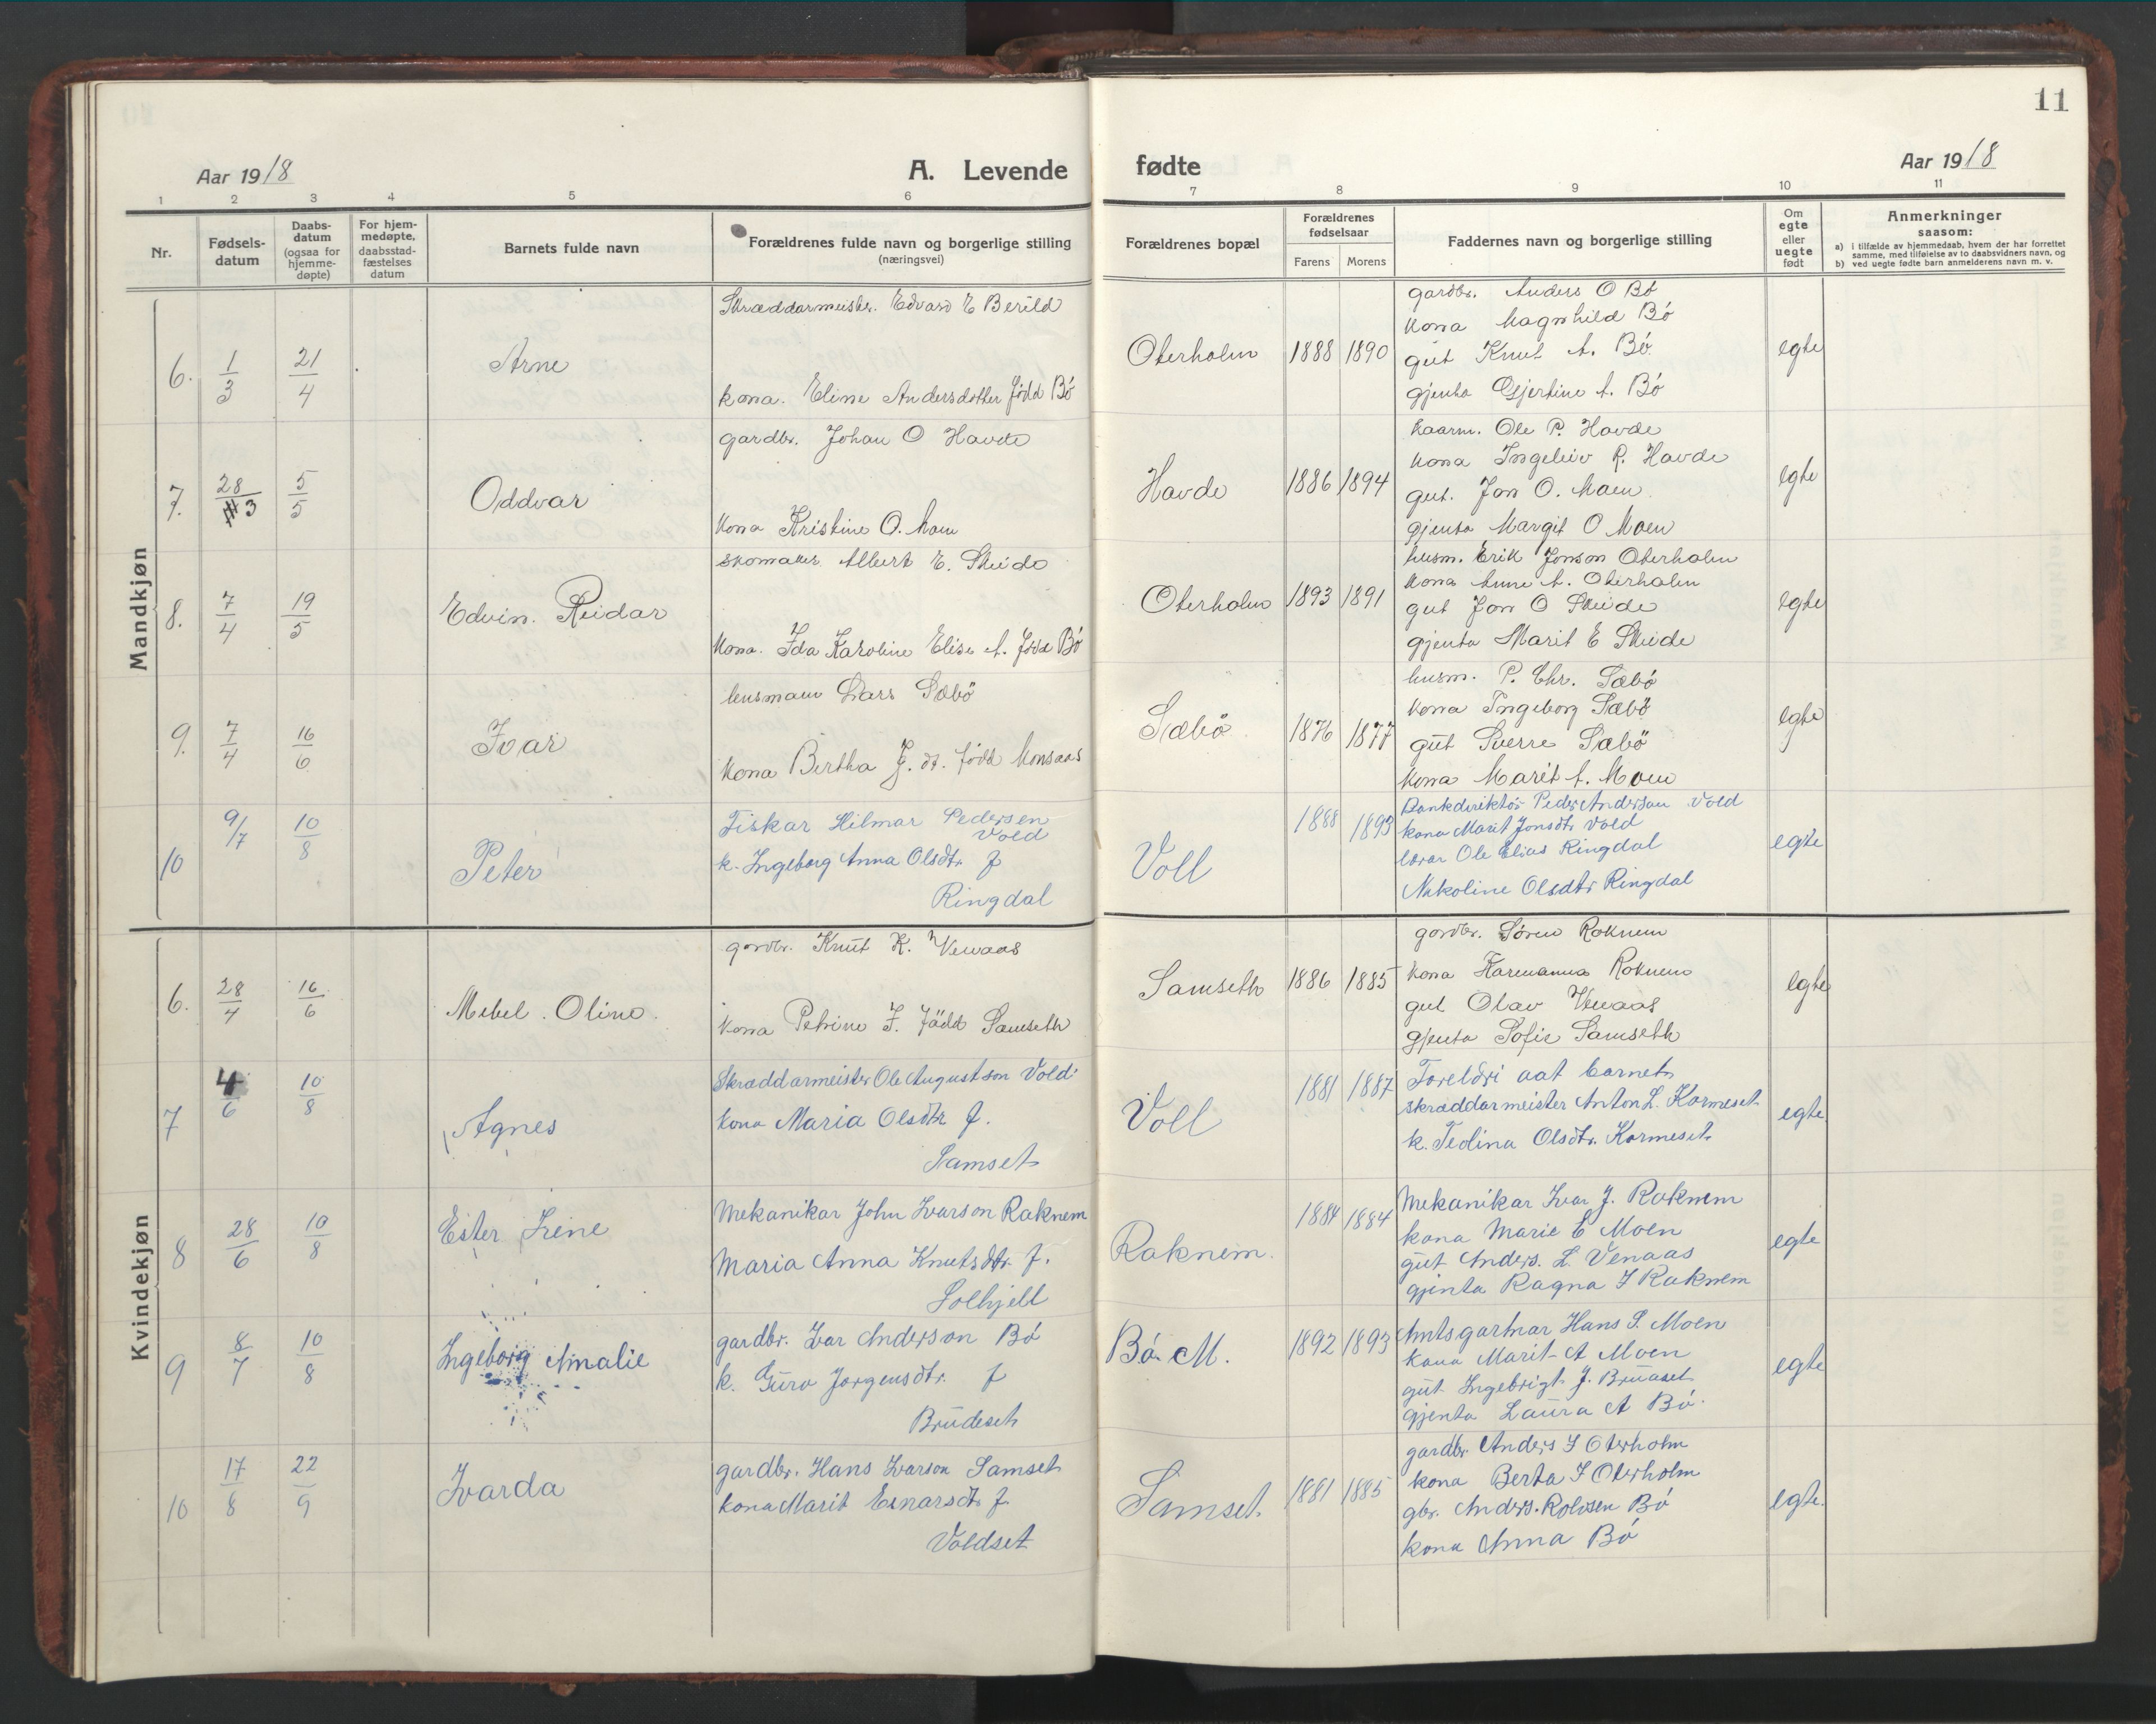 11
Aar 1918
A. Levende fødte
Aar 1918
1 2 3 4 5 6 7 8 9 10 11
Nr.
Fødsels-
datum
Daabs-
datum
(ogsaa for
hjemme-
døpte)
For hjem-
medøpte,
daabsstad-
fæstelses
datum
Barnets fulde navn
Forældrenes fulde navn og borgerlige stilling
(næringsvei)
Forældrenes bopæl
Forældrenes
fødselsaar
Farens Morens
Faddernes navn og borgerlige stilling
Om
egte
eller
uegte
født
Anmerkninger
saasom:
a) i tilfælde av hjemmedaab, hvem der har forrettet
samme, med tilføielse av to daabsvidners navn, og
b) ved uegte fødte barn anmelderens navn m. v.
Mandkjøn
6. 1/3 21/4 Arne
Skræddarmeister. Edvard E Berild
kona. Eline Andersdotter född Bö
Oterholm 1888 1890
gardbr. Anders O Bö
kona Magnhild Bö
gut Knut A. Bö
gjenta Gjertine A. Bö
egte
7. 28/3 5/5 Oddvar
gardbr. Johan O Havde
kona Kristine O. Moen
Havde 1886 1894
kaarm. Ole P. Havde
kona Ingeleiv R. Havde
gut. Jon O. Moen
gjenta Margit O Moen
egte
8. 7/4 19/5 Edvin. Reidar
skomaker Albert E. Skeide
kona. Ida Karoline Elise A. född Bö
Oterholm 1893 1891
husm. Erik Jonson Oterholm
kona Anne A. Oterholm
gut Jon O Skeide
gjenta Marit E Skeide
egte
9. 7/4 16/6 Ivar
husmann Lars Sæbö
kona Bertha J. dt. född Monsaas
Sæbö 1876 1877
husm. P. Chr. Sæbö
kona Ingeborg Sæbö
gut Sverre Sæbö
kona Marit A. Moen
egte
10 9/7 10/8 Peter
Fiskar Hilmar Pedersen
Vold
k. Ingeborg Anna Olsdtr. f
Ringdal
Voll 1888 1893
Bankdirektör Peder Anderson Vold
kona Marit Jonsdtr Vold
lærar Ole Elias Ringdal
Nikoline Olsdtr Ringdal
egte
Kvindekjøn
6. 28/4 16/6 Mebel. Oline.
gardbr. Knut K. Venaas
kona Petrine I. född Samseth
Samseth 1886 1885
gardbr. Sören Roknem
kona Karenanna Roknem
gut Olav Venaas
gjenta Sofie Samseth
egte
7 4/6 10/8 Agnes
Skræddarmeister Ole Augustson Vold
kona Maria Olsdtr f.
Samset
Voll 1881 1887
Foreldri aat barnet
skræddarmeister Anton L. Kormeset
k. Tedina Olsdtr. Kormeset
egte
8 28/6 10/8 Ester Irene
Mekanikar John Ivarson Raknem
Maria Anna Knutsdtr. f.
Solhjell
Raknem. 1884 1884
Mekanikar Ivar J. Raknem
kona Marie E Moen
gut Anders. L. Venaas
gjenta Ragna I Raknem
egte
9 8/7 10/8 Ingeborg Amalie
gardbr. Ivar Anderson Bö
k. Guro Jørgensdtr. f
Brudeset
Bö. M. 1892 1893
Amtsgartnar Hans S. Moen
kona Marit A Moen
gut Ingebrigt J. Bruaset
gjenta Laura A Bö.
egte
10 17/8 22/9 Ivarda
gardbr. Hans Ivarson Samset
kona Marit Einarsdtr f.
Voldset
Samset. 1881 1885
gardbr. Anders I Oterholm
kona Berta I Oterholm
gbr. Anders Rolvsen Bö
kona Anna Bö
egte.